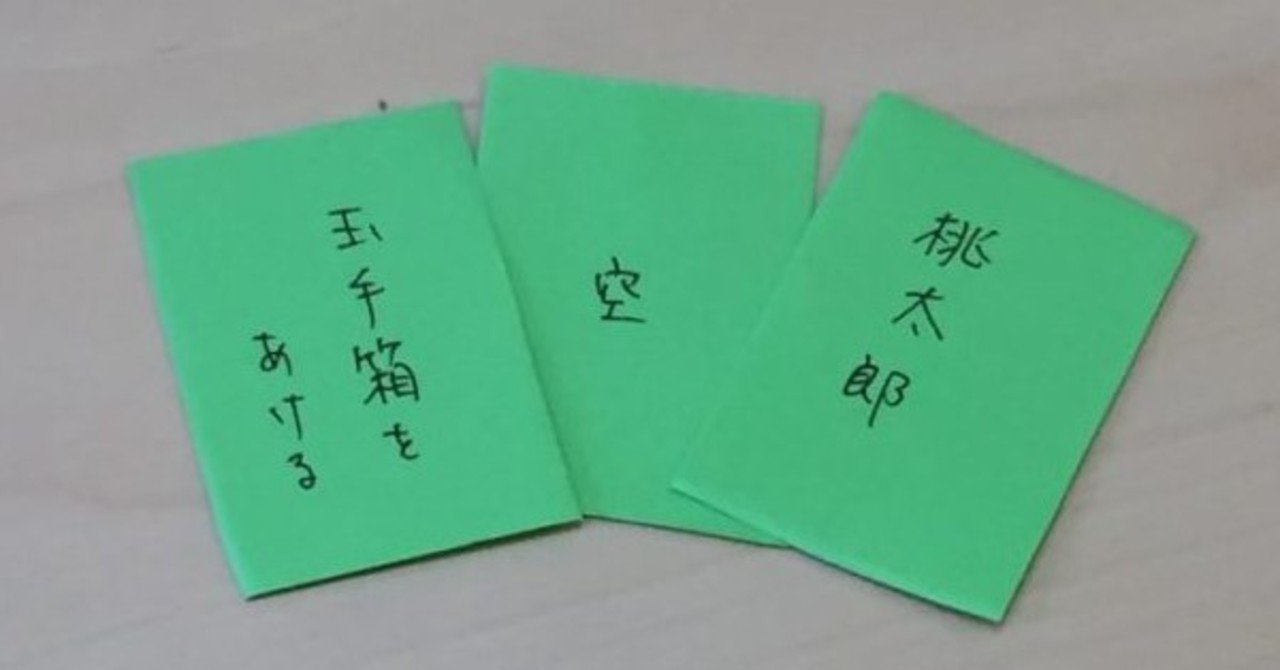 玉手箱を
あける
空
桃太郎